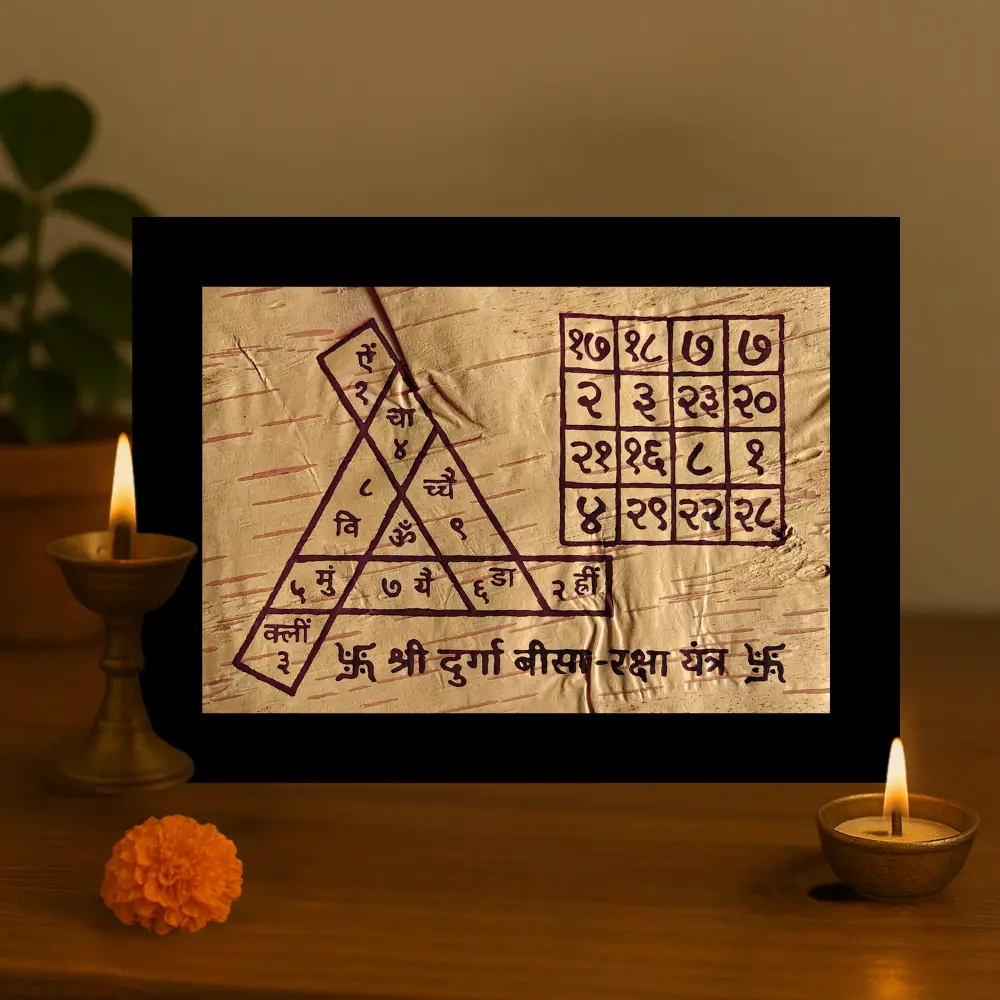 ऐं
१
चा
४
८
च्चै
वि
ॐ
९
५ मुं ७ यै ६ डा २ ह्रीं
क्लीं
३
१७ १८ ७ ७
२ ३ २३ २०
२१ १६ ८ १
४ २९ २२ २८
卐 श्री दुर्गा बीसा-रक्षा यंत्र 卐